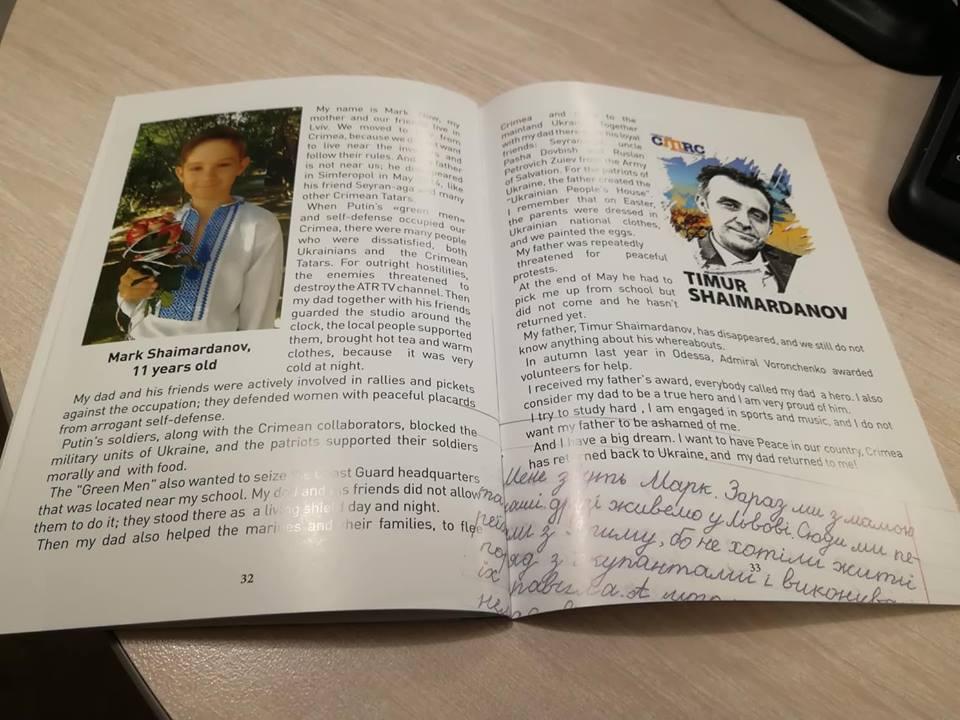 My name is Mark my
mother and our live in
Lviv. We moved to from
Crimea, because we want
to live near the and
follow their rules. And father
is not near us; he
in Simferopol in May like
his friend Seyran-aga and many
other Crimean Tatars.
When Putin's «green men»
and self-defense occupied our
Crimea, there were many people
who were dissatisfied, both
Ukrainians and the Crimean
Tatars. For outright hostilities,
the enemies threatened to
destroy the ATR TV channel. Then
my dad together with his friends
guarded the studio around the
clock, the local people supported
them, brought hot tea and warm
clothes, because it was very
cold at night.
Mark Shaimardanov,
11 years old
My dad and his friends were actively involved in rallies and pickets
against the occupation; they defended women with peaceful placards
from arrogant self-defense.
Putin's soldiers, along with the Crimean collaborators, blocked the
military units of Ukraine, and the patriots supported their soldiers
morally and with food.
The "Green Men" also wanted to seize Guard headquarters
that was located near my school. My and friends did not allow
them to do it; they stood there as a shield day and night.
Then my dad also helped the and their families, to flee
32
Crimea and to the
mainland together
with my dad his loyal
friends: uncle
Pasha Dovbish and Ruslan
Petrovich Zuiev from the Army
of Salvation. For the patriots of
Ukraine, the father created the
"Ukrainian People's House"
I remember that on Easter,
the parents were dressed in
Ukrainian national clothes,
and we painted the eggs.
My father was repeatedly
threatened for peaceful
protests.
At the end of May he had to
pick me up from school but
did not come and he hasn't
returned yet.
CMRC
TIMUR
SHAIMARDANOV
My father, Timur Shaimardanov, has disappeared, and we still do not
know anything about his whereabouts.
In autumn last year in Odessa, Admiral Voronchenko awarded
volunteers for help.
I received my father's award, everybody called my dad a hero. I also
consider my dad to be a true hero and I am very proud of him.
I try to study hard , I am engaged in sports and music, and I do not
want my father to be ashamed of me.
And I have a big dream. I want to have Peace in our country, Crimea
has returned back to Ukraine, and my dad returned to me!
Мене Марк. Зараз ми з мамою
та живемо у Львові. Сюди ми пе-
з бо не хотіли жити
з і
їх
33